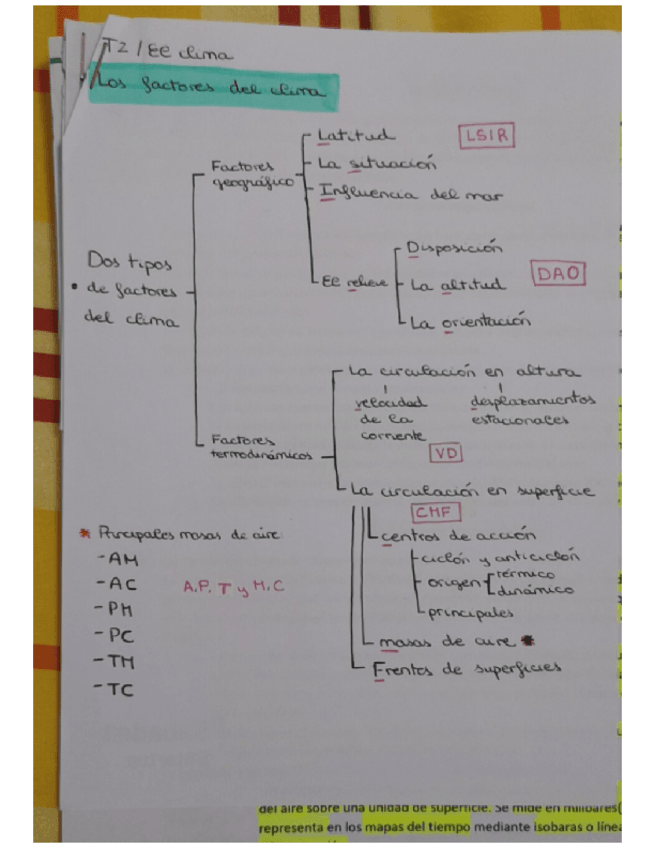 T2 / El clima
Los factores del clima
Latitud
LSIR
La situación
Factores
geográfico
Influencia del mar
Disposición
El relieve
La altitud
DAO
La orientación
Dos tipos
• de factores
del clima
La circulación en altura
velocidad
de la
corriente
desplazamientos
estacionales
Factores
termodinámicos
VD
La circulación en superficie
CMF
centros de acción
ciclón y anticiclón
origen
térmico
dinámico
principales
masas de aire *
Frentes de superficies
* Principales masas de aire:
- AM
- AC
- PM
- PC
- TM
- TC
A.P. T y M.C
del aire sobre una unidad de superficie. Se mide en milibares(
representa en los mapas del tiempo mediante isobaras o líne